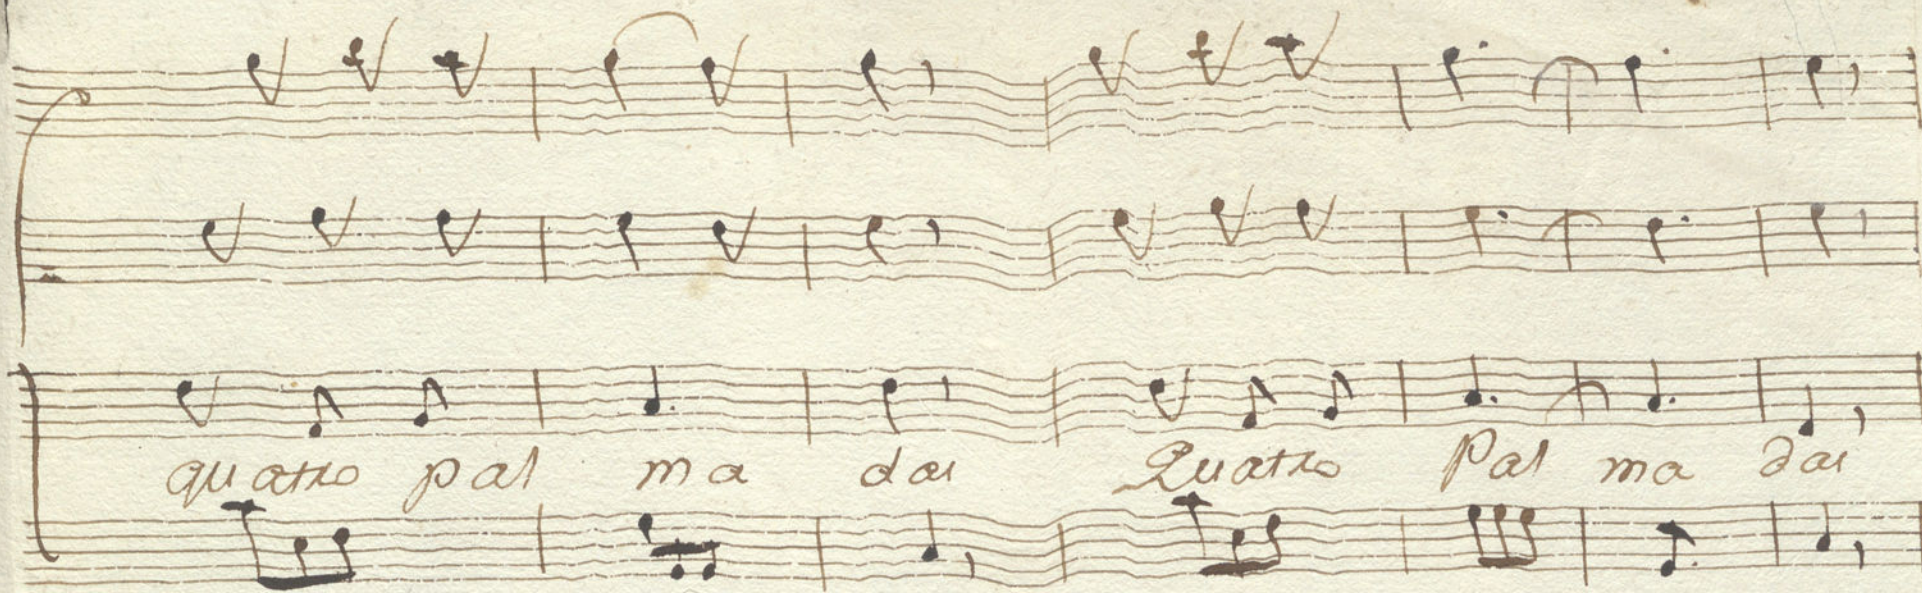 quatro pal ma das Quatro Pal ma das